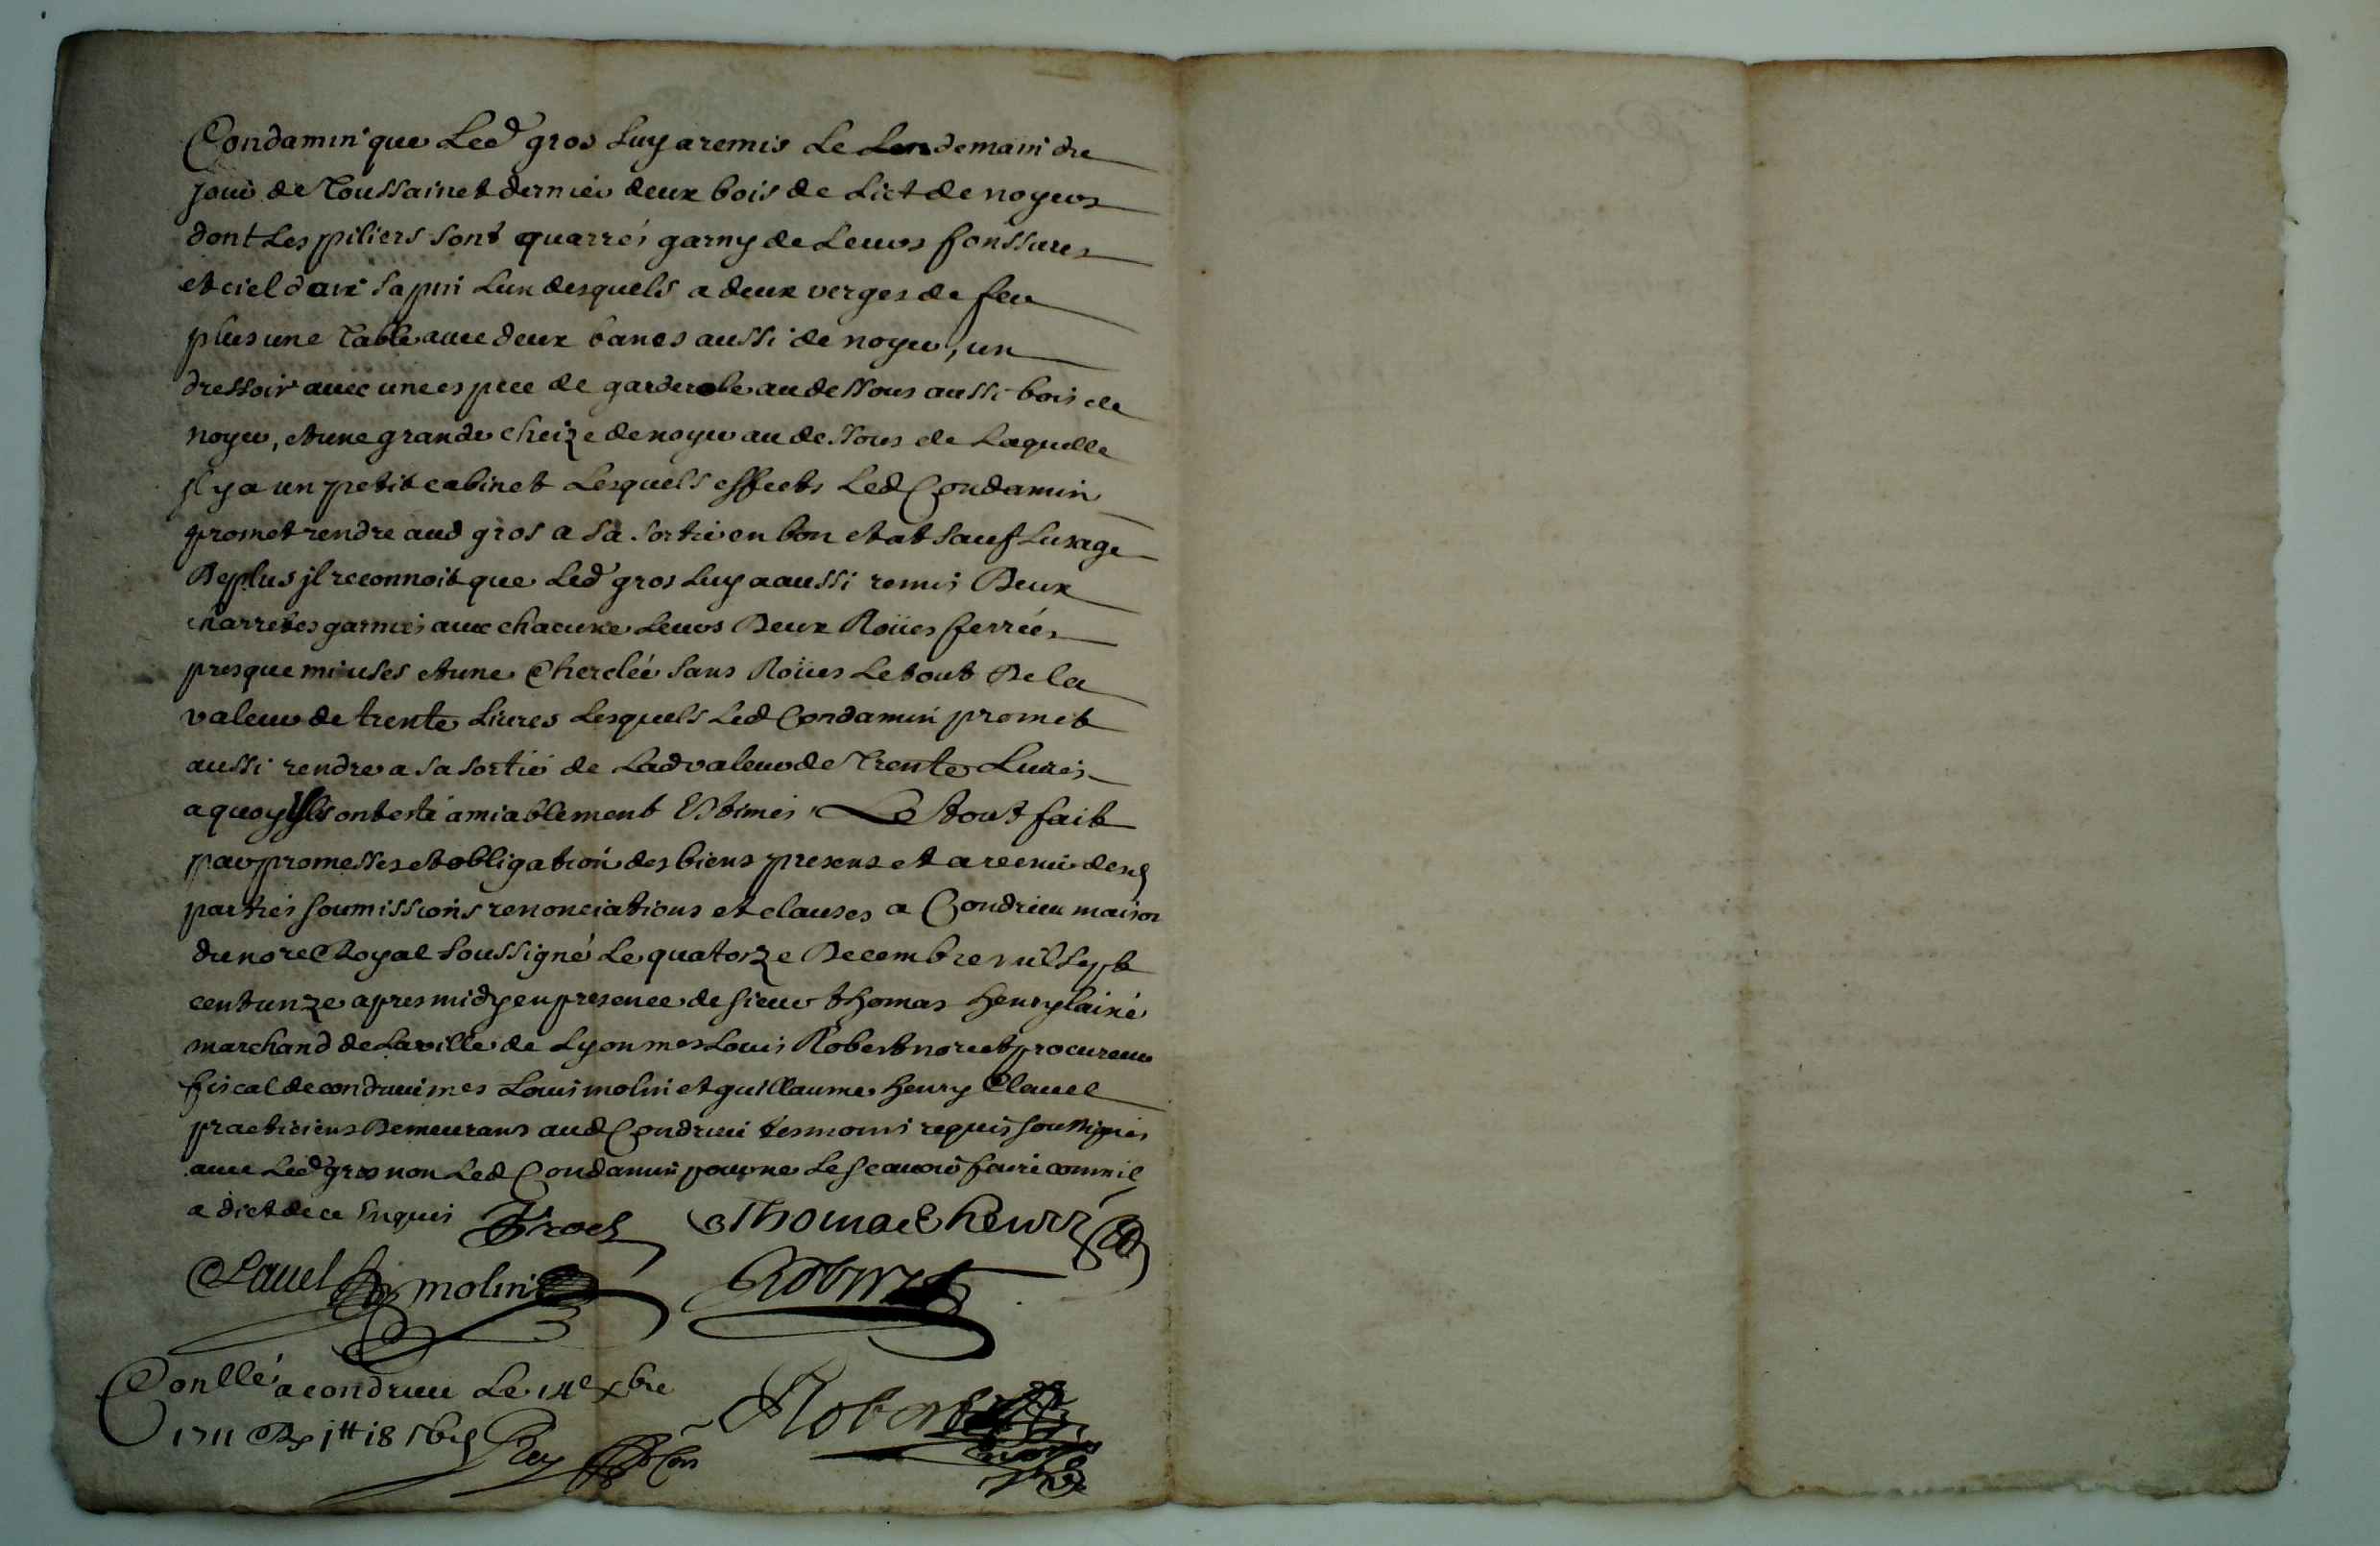 Condamin que Led gros Luy a remis Le Lendemain du
jour de Toussainct dernier deux bois de Lict de noyer
dont Les piliers sont quarrés garny de Leurs fonssures
et ciel dair sapin Lun desquels a deux verges de fer
plus une Table avec deux bancs aussi de noyer, un
dressoir avec une espece de garderobe au dessous aussi bois de
noyer, et une grande cheize de noyer au dessous de Laquelle
jl y a un petit cabinet Lesquels effects Led Condamin
promet rendre aud gros a sa sortie en bon etat sauf Lusage
De plus jl reconnoit que Led gros Luy a aussi remis Deux
charretes garnies avec chacune Leurs Deux Roües ferrées
presque mi uses et une Cherclée sans Roües Le tout De la
valeur de trente Livres Lesquels Led Condamin promet
aussi rendre a sa sortie de Lad valeur de Trente Livres
a quoy jls ont esté amiablement Estimés Le tout fait
par promesses et obligation des biens presens et a venir desd
parties soumissions renonciations et clauses a Condrieu maison
du nore Royal soussigné Le quatorze Decembre mil sept
cent unze apres midy en presence de sieur thomas henry lainé
marchand de La ville de Lyon mes Louis Robert nore et procureur
fiscal de condrieu mes Louis molin et guillaume henry Clavel
practiciens Demeurans aud Condrieu tesmoins requis soussignés
avec Led gros non Led Condamin pour ne Le scavoir faire comme il
a dict de ce enquis Gros Thomas henry
Clavel molin Robert
Conllé a condrieu Le 14e xbre
1711 Rx 1tt 18 s Rey Robert